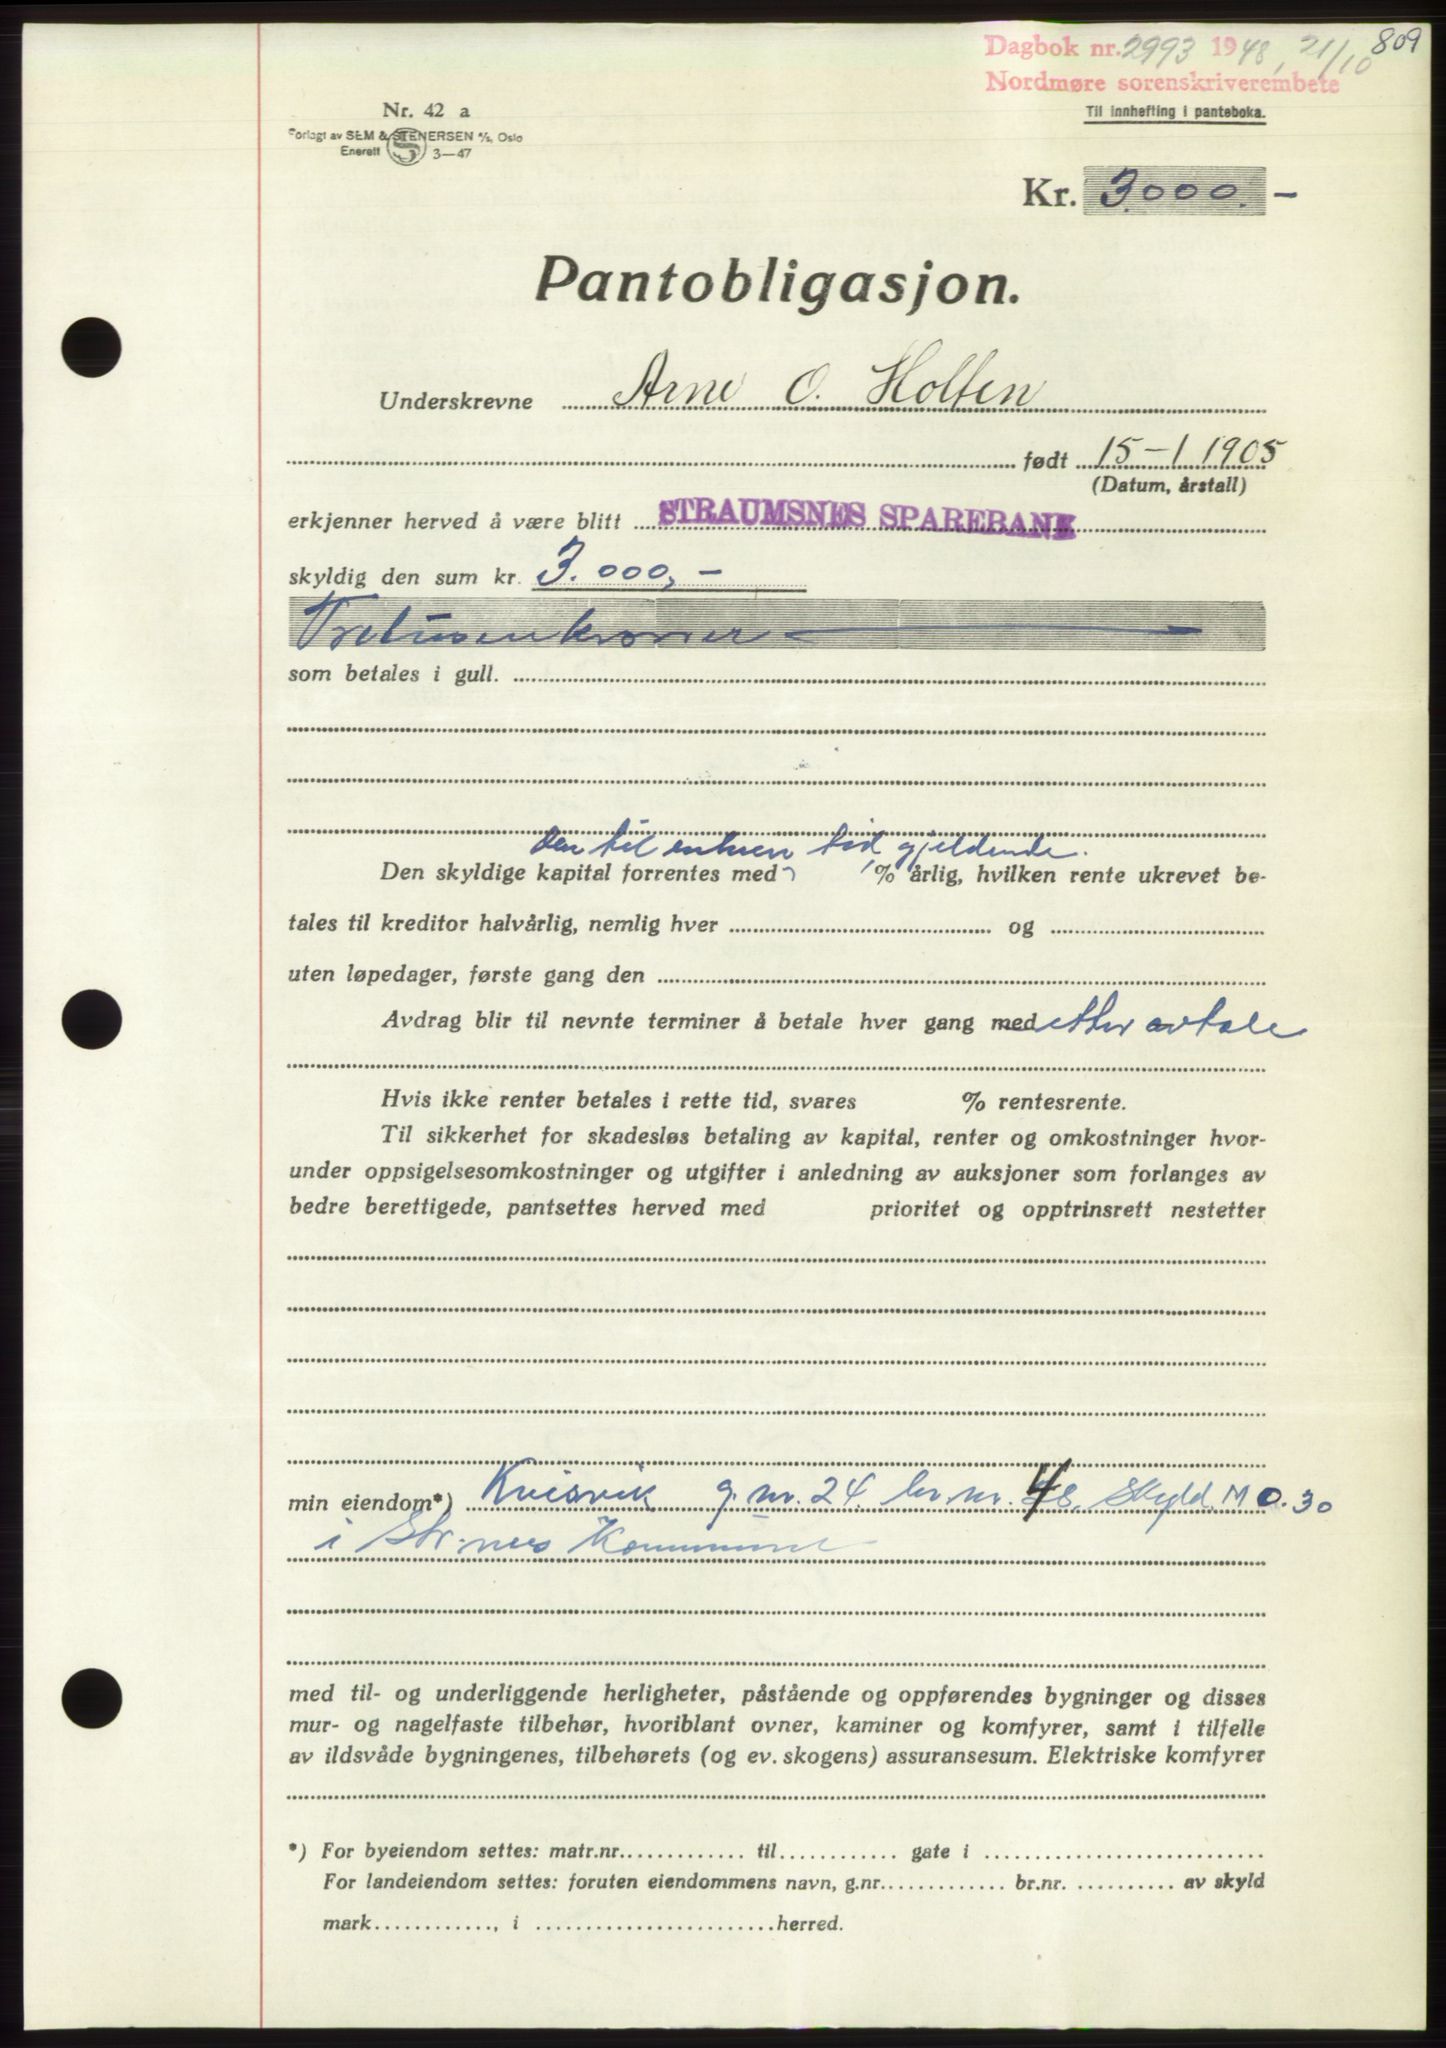 809
Dagbok nr. 2993 1948, 21/10
Nordmøre sorenskriverembete
Til innhefting i panteboka.
Nr. 42 a
Forlagt av SEM & STENERSEN A/S, Oslo
Enerett 3—47
Kr. 3.000.—
Pantobligasjon.
Underskrevne Arne O. Holten
født 15-1 1905
(Datum, årstall)
erkjenner herved å være blitt STRAUMSNES SPAREBANK
skyldig den sum kr. 3.000,-
Tretusenkroner
som betales i gull.
den til enhver tid gjeldende.
Den skyldige kapital forrentes med % årlig, hvilken rente ukrevet be-
tales til kreditor halvårlig, nemlig hver og
uten løpedager, første gang den
Avdrag blir til nevnte terminer å betale hver gang med etter avtale
Hvis ikke renter betales i rette tid, svares % rentesrente.
Til sikkerhet for skadesløs betaling av kapital, renter og omkostninger hvor-
under oppsigelsesomkostninger og utgifter i anledning av auksjoner som forlanges av
bedre berettigede, pantsettes herved med prioritet og opptrinsrett nestetter
min eiendom*) Kvisvik g.nr. 24 br.nr. 48 Skyld M 0.30
i Str.nes Kommune
med til- og underliggende herligheter, påstående og oppførendes bygninger og disses
mur- og nagelfaste tilbehør, hvoriblant ovner, kaminer og komfyrer, samt i tilfelle
av ildsvåde bygningenes, tilbehørets (og ev. skogens) assuransesum. Elektriske komfyrer
*) For byeiendom settes: matr.nr. til gate i
For landeiendom settes: foruten eiendommens navn, g.nr. br.nr. av skyld
mark , i herred.